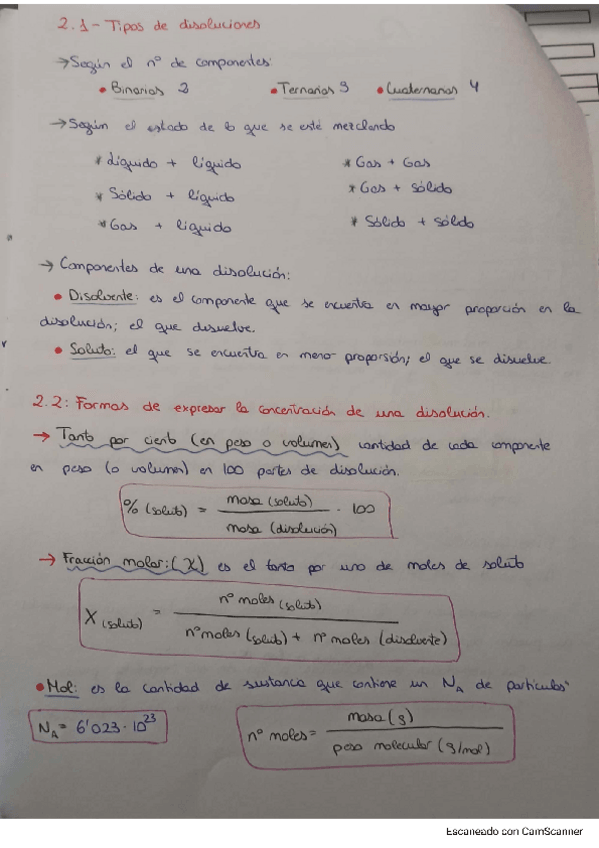 2.1- Tipos de disoluciones
→ Según el nº de componentes:
• Binarios 2 • Ternarios 3 • Cuaternarios 4
→ Según el estado de lo que se esté mezclando
* Líquido + líquido * Gas + Gas
* Sólido + líquido * Gas + sólido
* Gas + líquido * Sólido + sólido
→ Componentes de una disolución:
• Disolvente: es el componente que se encuentra en mayor proporción en la
disolución; el que disuelve.
• Soluto: el que se encuentra en menor proporsión; el que se disuelve.
2.2: Formas de expresar la concentración de una disolución.
→ Tanto por ciento (en peso o volumen) cantidad de cada componente
en peso (o volumen) en 100 partes de disolución.
% (soluto) = masa (soluto) / masa (disolución) · 100
→ Fracción molar: (X) es el tanto por uno de moles de soluto
X (soluto) = nº moles (soluto) / nº moles (soluto) + nº moles (disolvente)
• Mol: es la cantidad de sustancia que contiene un N_A de partículas
N_A = 6'023 · 10^23 nº moles = masa (g) / peso molecular (g/mol)
Escaneado con CamScanner